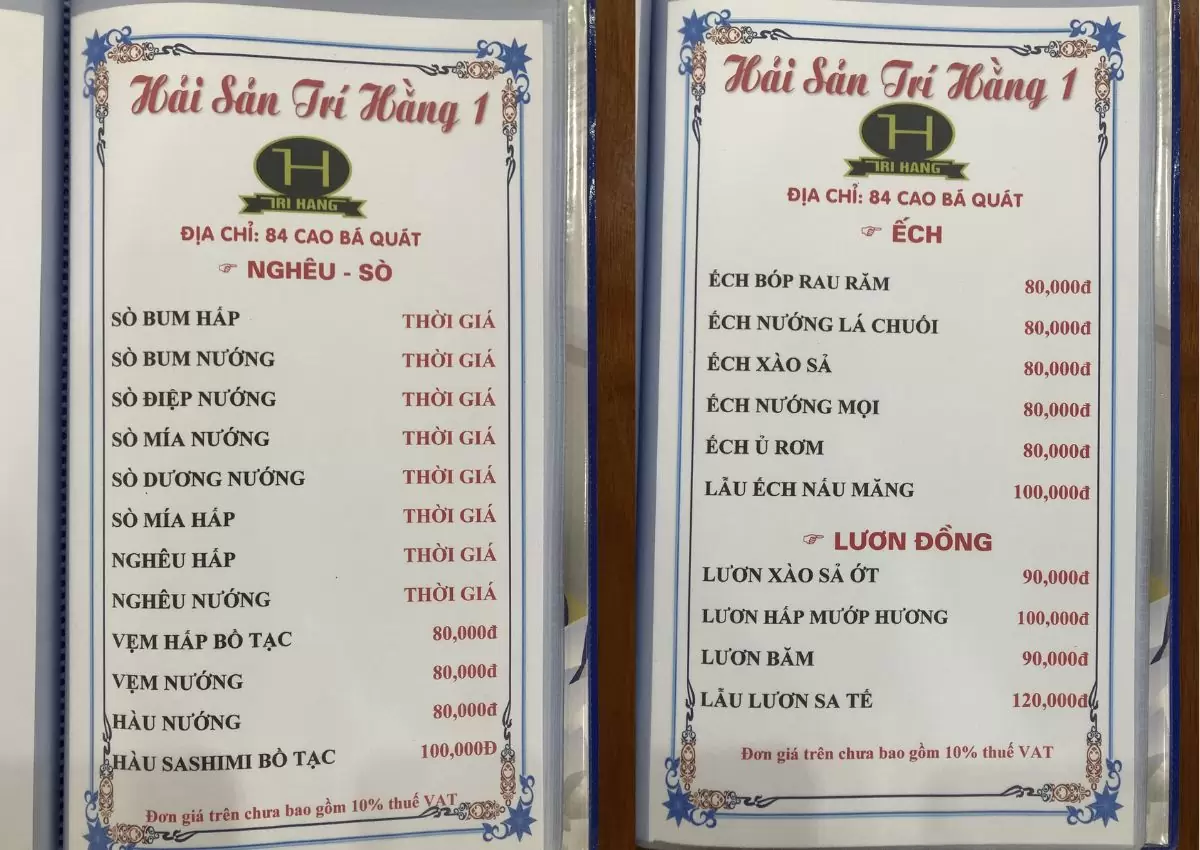 Hải Sản Trí Hằng 1
TH
TRI HANG
ĐỊA CHỈ: 84 CAO BÁ QUÁT
☞ NGHÊU - SÒ
SÒ BUM HẤP THỜI GIÁ
SÒ BUM NƯỚNG THỜI GIÁ
SÒ ĐIỆP NƯỚNG THỜI GIÁ
SÒ MÍA NƯỚNG THỜI GIÁ
SÒ DƯƠNG NƯỚNG THỜI GIÁ
SÒ MÍA HẤP THỜI GIÁ
NGHÊU HẤP THỜI GIÁ
NGHÊU NƯỚNG THỜI GIÁ
VẸM HẤP BỒ TẠC 80,000đ
VẸM NƯỚNG 80,000đ
HÀU NƯỚNG 80,000đ
HÀU SASHIMI BỒ TẠC 100,000Đ
Đơn giá trên chưa bao gồm 10% thuế VAT
Hải Sản Trí Hằng 1
TH
TRI HANG
ĐỊA CHỈ: 84 CAO BÁ QUÁT
☞ ẾCH
ẾCH BÓP RAU RĂM 80,000đ
ẾCH NƯỚNG LÁ CHUỐI 80,000đ
ẾCH XÀO SẢ 80,000đ
ẾCH NƯỚNG MỌI 80,000đ
ẾCH Ủ RƠM 80,000đ
LẪU ẾCH NẤU MĂNG 100,000đ
☞ LƯƠN ĐỒNG
LƯƠN XÀO SẢ ỚT 90,000đ
LƯƠN HẤP MƯỚP HƯƠNG 100,000đ
LƯƠN BĂM 90,000đ
LẪU LƯƠN SA TẾ 120,000đ
Đơn giá trên chưa bao gồm 10% thuế VAT